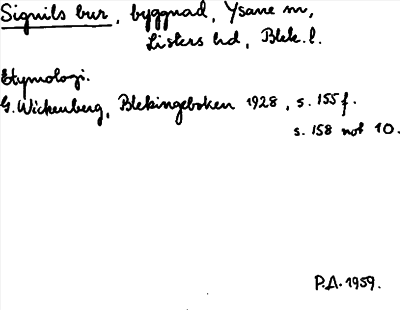 Signils bur, byggnad, Ysane sn,
Listers hd, Blek. l.
Etymologi.
G. Wickenberg, Blekingeboken 1928, s. 155 f.
s. 158 not 10.
P.A. 1959.